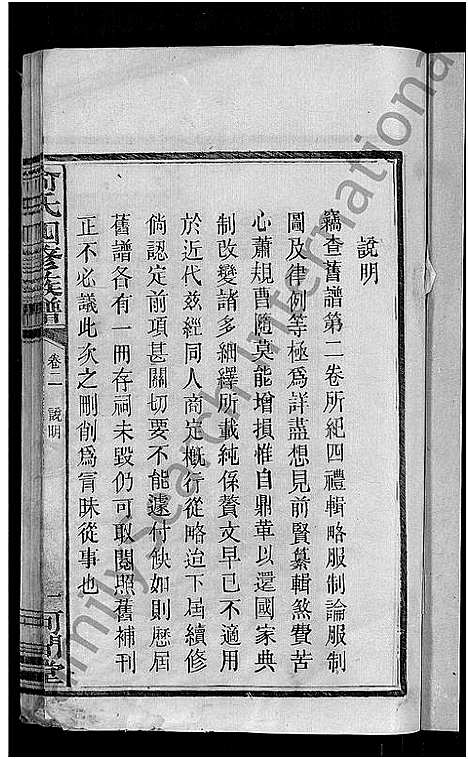 說明
竊查舊譜第二卷所紀四禮輯略服制論服制
圖及律例等極爲詳盡想見前賢纂輯煞費苦
心蕭規曹隨莫能增損惟自鼎革以還國家典
制改變諸多細繹所載純係贅文早已不適用
於近代玆經同人商定槪行從略迨下屆續修
倘認定前項甚關切要不能遽付佚如則歷屆
舊譜各有一冊存祠未毀仍可取閱照舊補刊
正不必議此次之刪削爲冒昧從事也
氏四修族譜
卷二 說明
河間堂
Family Search International